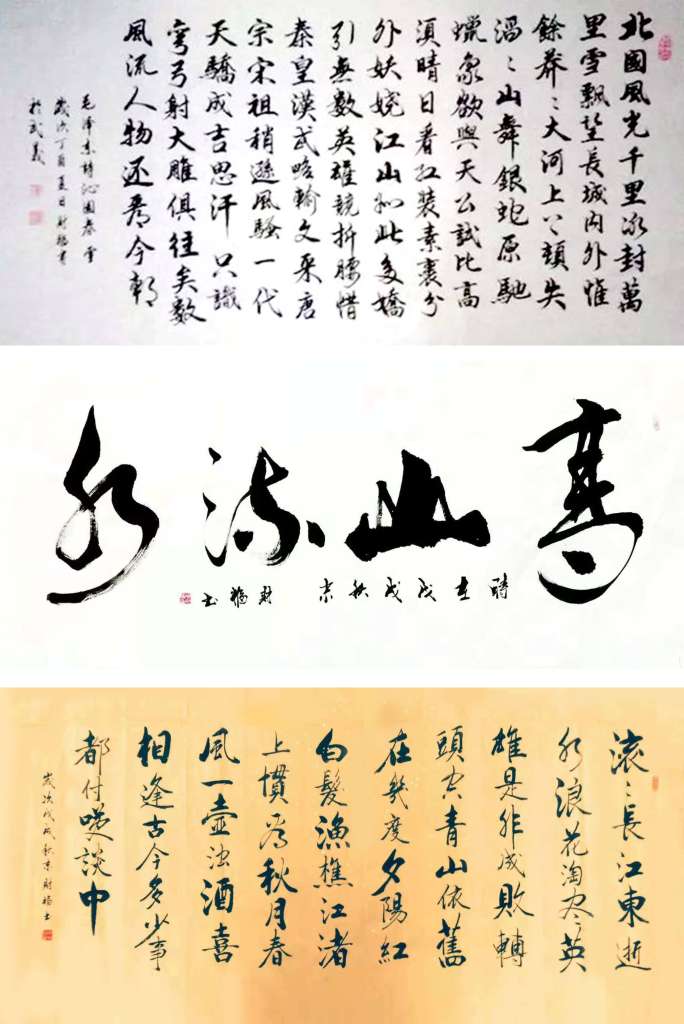 北國風光千里冰封萬
里雪飄望長城內外惟
餘莽〻大河上下頓失
滔〻山舞銀蛇原馳
蠟象欲與天公試比高
須晴日看紅裝素裹分
外妖嬈江山如此多嬌
引無數英雄競折腰惜
秦皇漢武略輸文采唐
宗宋祖稍遜風騷一代
天驕成吉思汗只識
彎弓射大雕俱往矣數
風流人物還看今朝
毛澤東詩沁園春雪
歲次丁酉夏日財福書
於武義
高山流水
時在戊戌秋京 財福書
滾〻長江東逝
水浪花淘盡英
雄是非成敗轉
頭空青山依舊
在幾度夕陽紅
白髮漁樵江渚
上慣看秋月春
風一壺濁酒喜
相逢古今多少事
都付笑談中
歲次戊戌秋京財福書